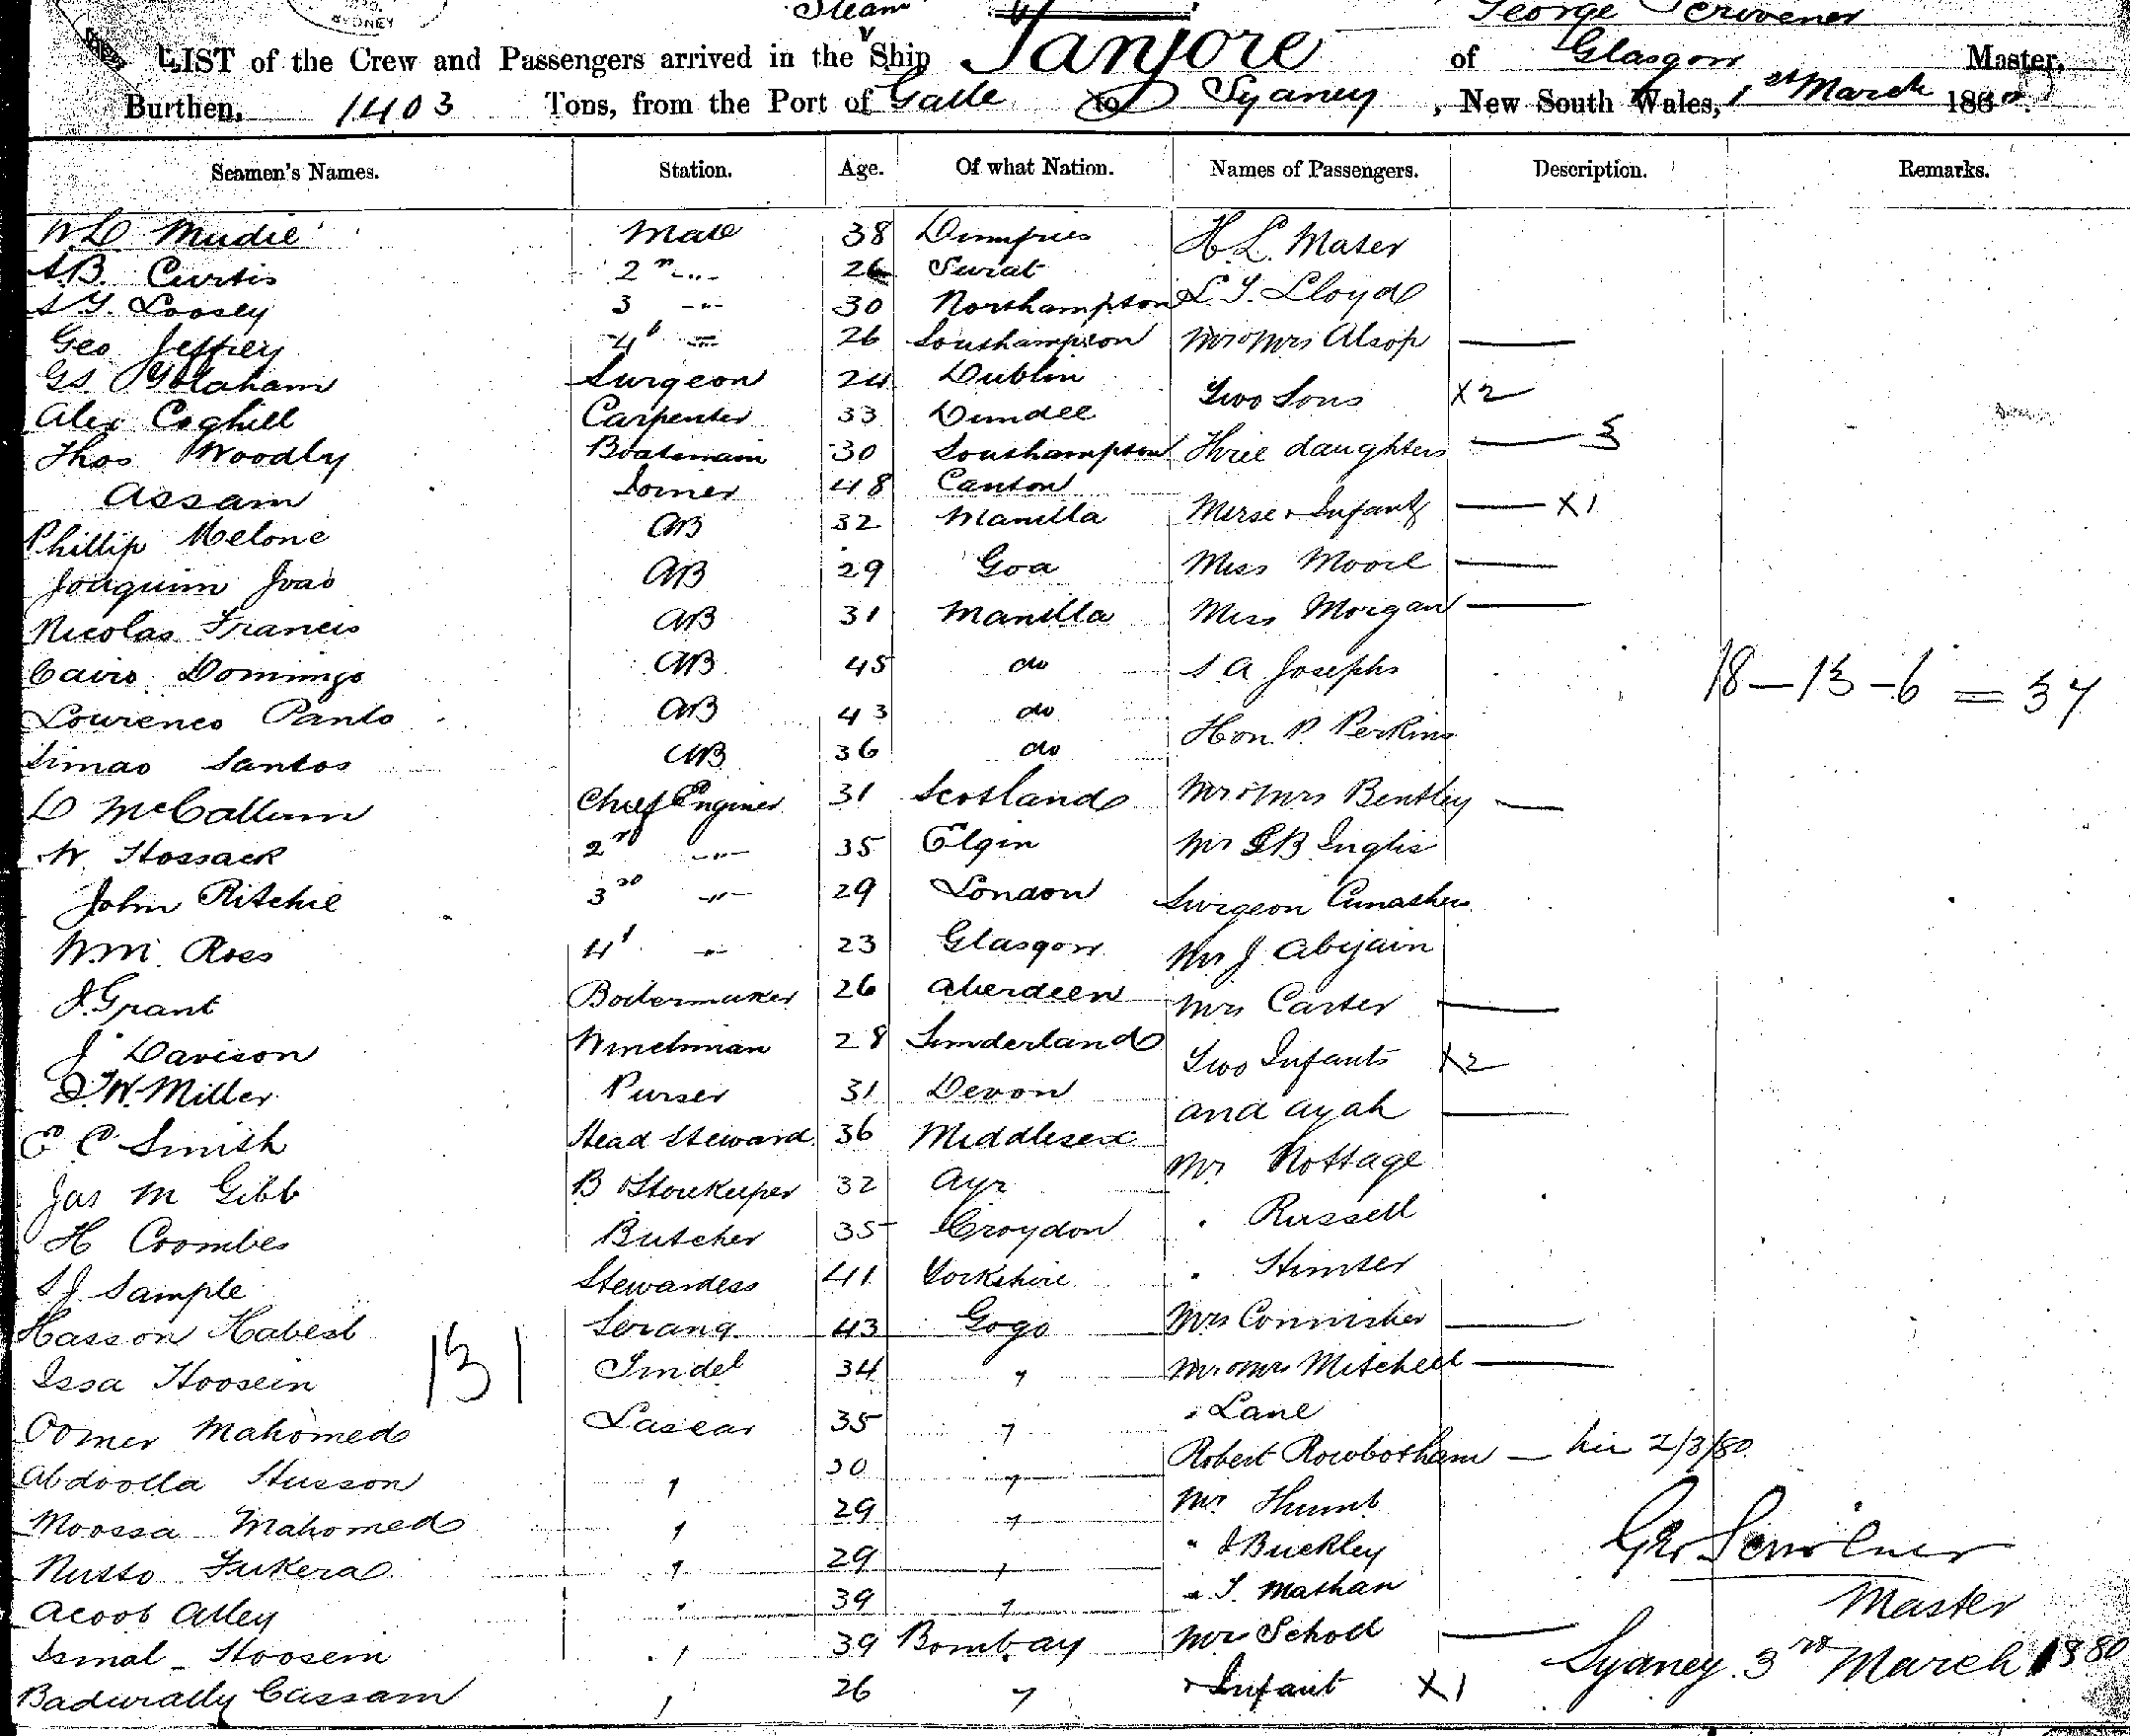 SYDNEY
Steam
George Scrivener
LIST of the Crew and Passengers arrived in the Ship Tanjore of Glasgow Master,
Burthen, 1403 Tons, from the Port of Galle to Sydney, New South Wales, 1st March 1880
Seamen's Names. Station. Age. Of what Nation. Names of Passengers. Description. Remarks.
W.D Mudie Mate 38 Dumfries H. L. Mater
A.B. Curtis 2nd -"- 26 Surat L. J. Lloyd
A Y. Loosey 3 -"- 30 Northampton
Geo Jeffrey 4th -"- 26 Southampton Mr & Mrs Alsop
GS Surgeon 24 Dublin Two Sons X2
Alex Coghill Carpenter 33 Dundee
Thos Woodby Boatsmain 30 Southampton Three daughters 3
Assam Joiner 48 Canton
Phillip Melone AB 32 Manilla Nurse & Infant X1
Joaquim Joao AB 29 Goa Miss Moore
Nicolas Francis AB 31 Manilla Miss Morgan
Cairo Domingo AB 45 do S A Josephs
18 - 13 - 6 = 37
Lourenco Panto AB 43 do Hon. P. Perkins
Simao Santos AB 36 do
D McCallum Chief Enginer 31 Scotland Mr & Mrs Bentley
W. Hossack 2nd -"- 35 Elgin Mr GB Inglis
John Ritchie 3rd -"- 29 London Surgeon
Wm Ross 4th -"- 23 Glasgow Mr J. Abijain
J. Grant Boilermaker 26 Aberdeen Mrs Carter
J Davison Winchman 28 Sunderland Two Infants X2
J.W. Miller Purser 31 Devon and ayah
E C Smith Head Steward 36 Middlesex Mr Nottage
Jas M Gibb B Storekeeper 32 Ayr
H Coombes Butcher 35 Croydon " Russell
S J. Sample Stewardess 41 Yorkshire " Himser
Hasson Habest Serang 43 Gogo Mrs
131
Issa Hoosein Tindel 34 " Mr & Mrs Mitchell
Oomer Mahomed Lascar 35 " " Lane
Abdoolla Husson " 30 " Robert Rowbotham 2/3/80
Moossa Mahomed " 29 " Mr Thumb
Nusso Fukera " 29 " " J Buckley
Geo Scrivener
Acoob Alley " 39 " " T. Mathan
Master
Ismal Hoosein " 39 Bombay Mrs Scholl
Sydney 3rd March 1880
Badurally Cassam " 26 " & Infant X1